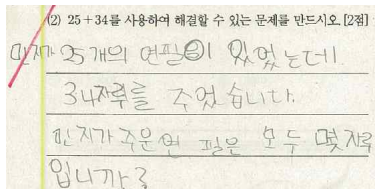 (2) 25+34를 사용하여 해결할 수 있는 문제를 만드시오. [2점]
민지가 25개의 연필이 있었는데
34자루를 주었습니다.
민지가 주운 연필은 모두 몇자루
입니까?